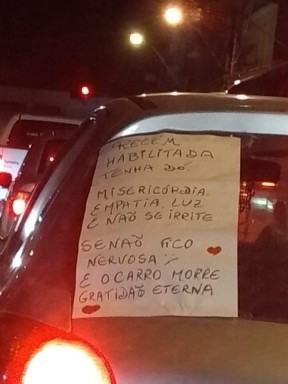 RECÉM
HABILITADA
TENHA DÓ,
MISERICÓRDIA,
EMPATIA, LUZ
E NÃO SE IRRITE
SENÃO FICO
NERVOSA :/
E O CARRO MORRE
GRATIDÃO ETERNA